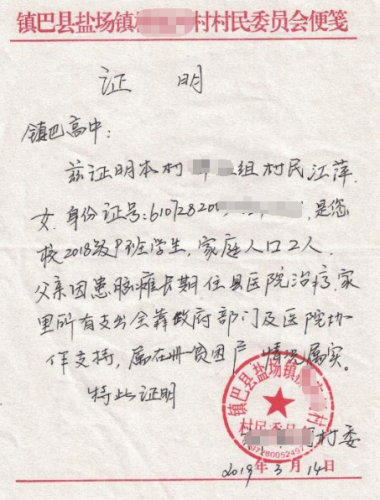 镇巴县盐场镇 村村民委员会便笺
证明
镇巴高中:
兹证明本村 组村民江萍
女,身份证号:61072820 ,是您
校2018级 班学生,家庭人口2人
父亲因患脑瘫长期住县医院治疗,家
里所有支出全靠政府部门及医院协
作支持,属在册贫困户 情况属实。
特此证明
村委
2019年3月14日
镇巴县盐场镇 村
村民委员会